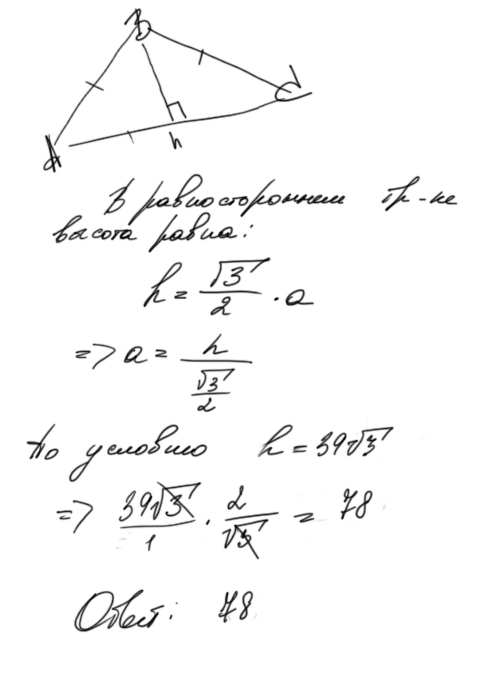 B
A
C
h
В равностороннем тр-ке
высота равна:
h = √3/2 · a
=> a = h/(√3/2)
По условию h = 39√3
=> 39√3/1 · 2/√3 = 78
Ответ: 78